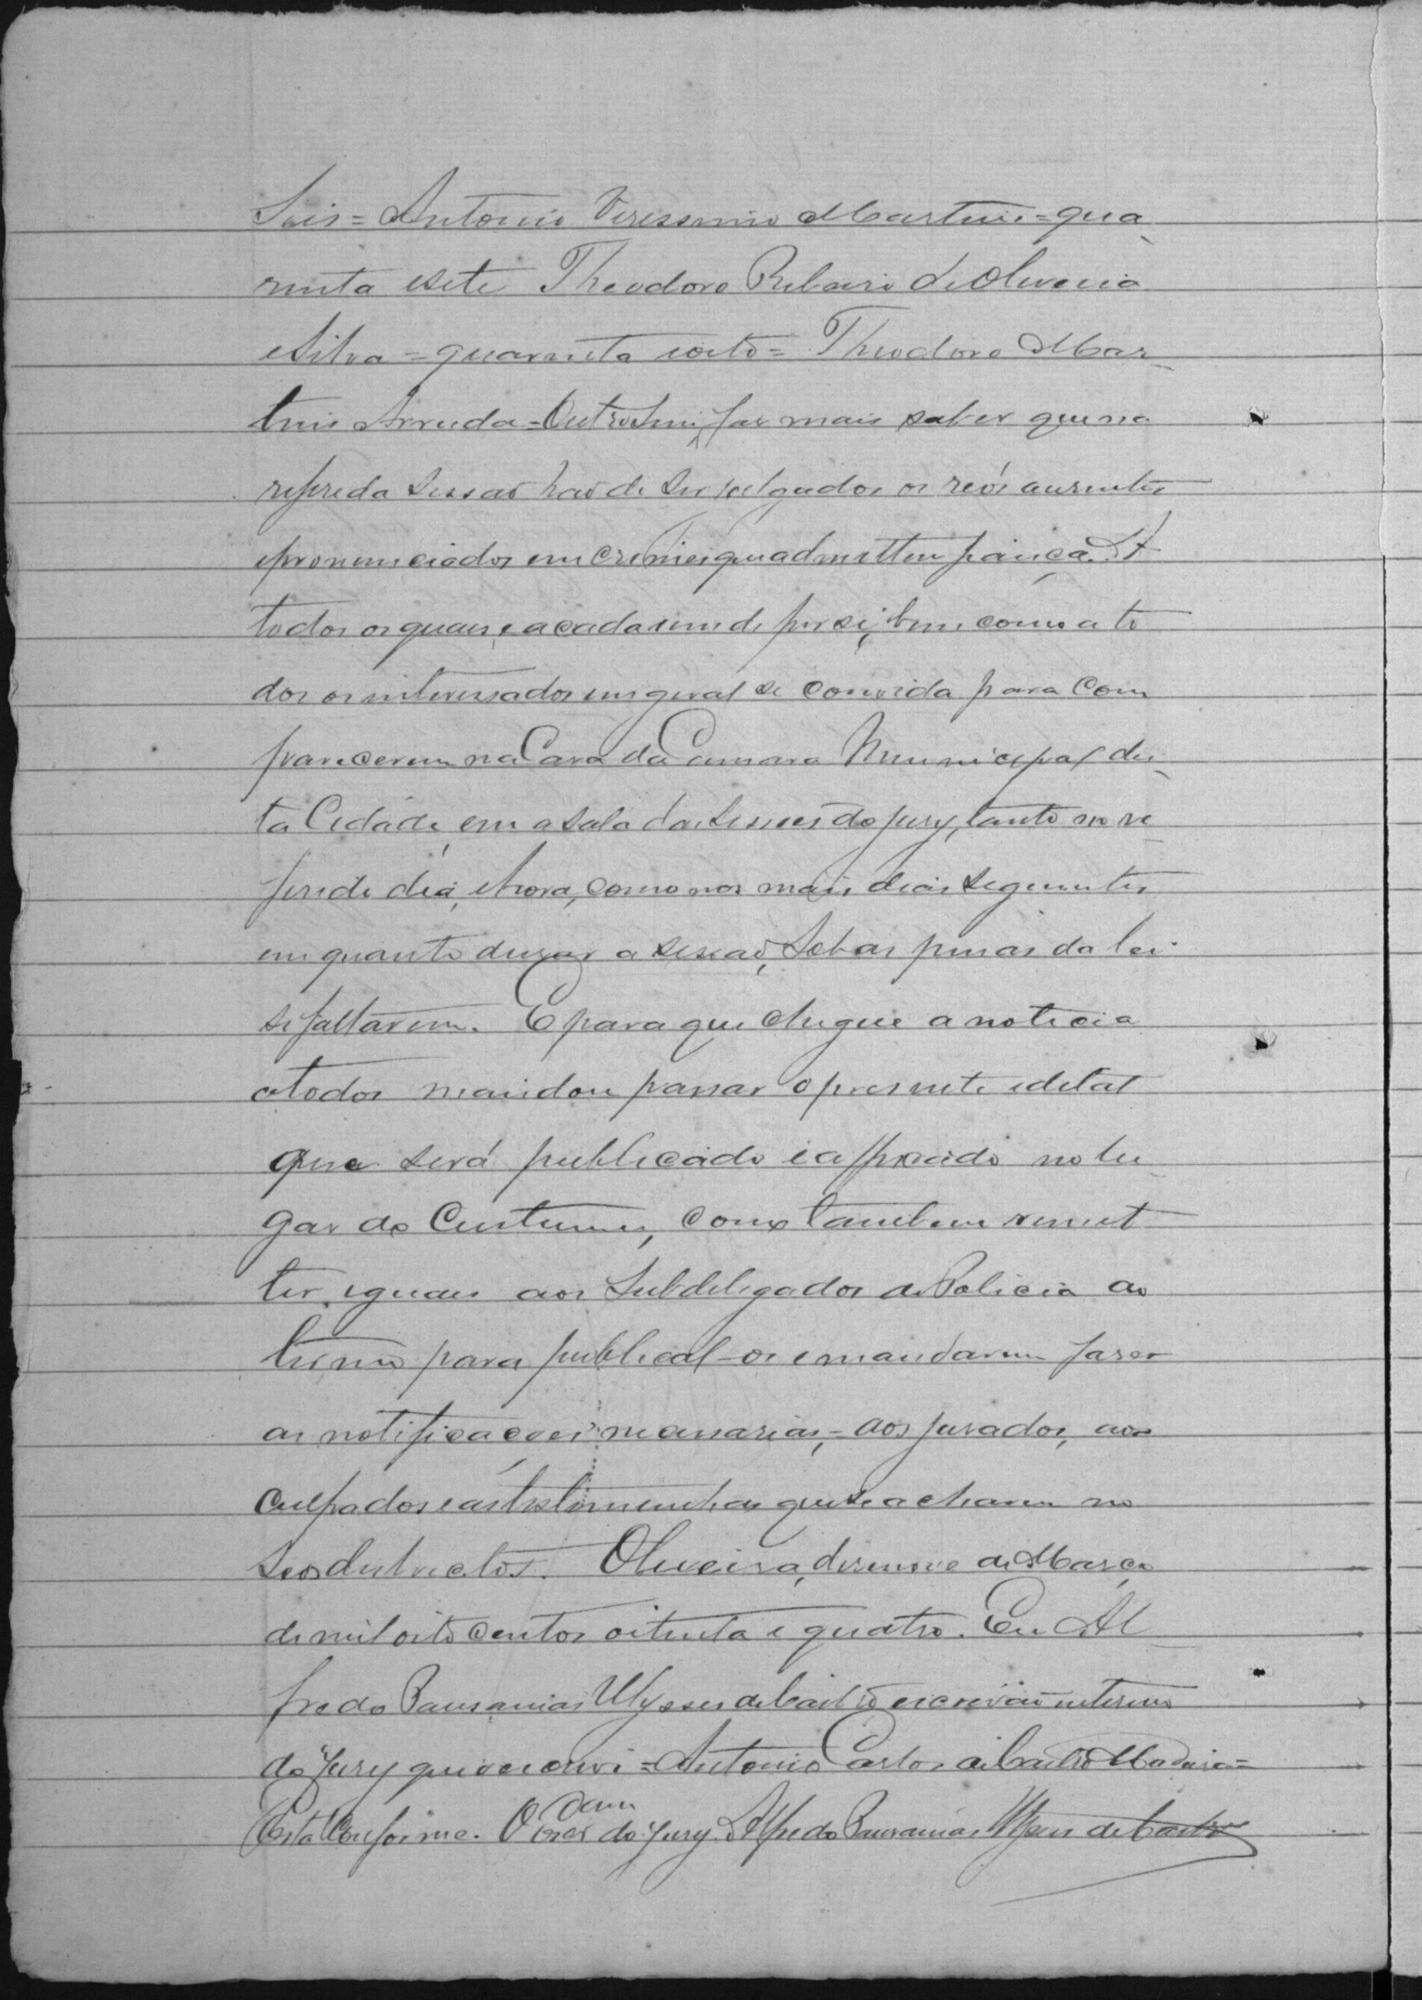 Seis = Antonio Veressimo Martins = qua
renta esete Theodoro Ribeiro de Oliveira
eSilva = quarenta eoito = Theodoro Mar
tins Arruda = Outrosim, faz mais saber que na
referida sessaõ haõ de ser julgados os réos ausentes
epronunciados em crimes que admittem fiança. A
todos os quaes, e a cada um de per si, bem como a to
dos os interessados em geral se convida para com
parecerem na Casa da Camara Municipal des
ta Cidade, em a sala das sessoes do jury, tanto no re
ferido dia, ehora, como nos mais dias seguintes
em quanto durar a sessaõ, sob as penas da lei
se faltarem. E para que chegue a noticia
atodos mandou passar o presente edital
que será publicado e affixado no lu
gar do Custume, como tambem remet
ter iguaes aos Subdelegados de Policia do
termo para publical-os emandarem faser
as notificaçoes necessarias, aos jurados, aos
culpados e as testemunhas que se acharem no
seos destrictos. Oliveira, desenove de Março
de mil oito centos oitenta e quatro. Eu Al
fredo Pausanias Ulysses de Castro escrivaõ interino
do jury que o escrevi = Antonio Carlos de Castro Madeira =
Está Conforme. O Escram do jury Alfredo Pausanias Ulysses de Castro